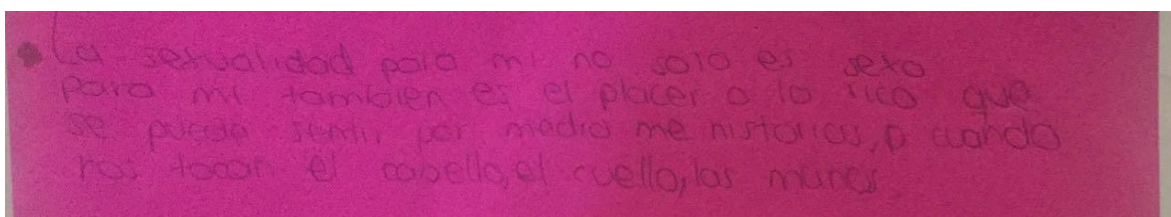 • La sexualidad para mi no solo es sexo
para mi tambien es el placer o lo rico que
se puede sentir por medio me historias, o cuando
nos tocan el cabello, el cuello, las manos.